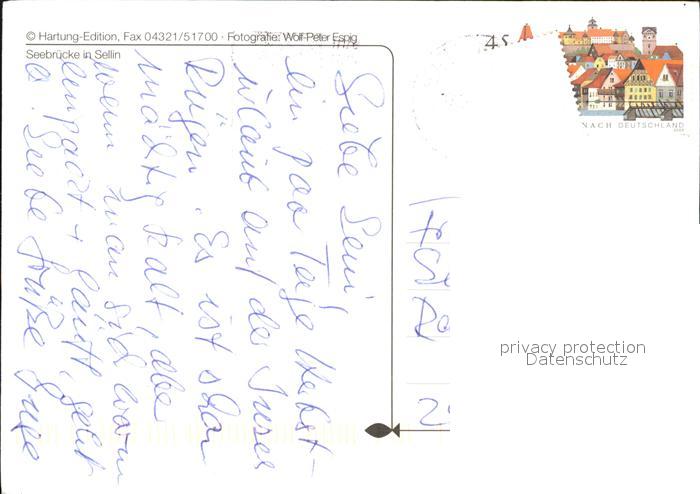 © Hartung-Edition, Fax 04321/51700 · Fotografie: Wolf-Peter Espig
Seebrücke in Sellin
45
NACH DEUTSCHLAND
Liebe
ein paar Tage Herbst-
urlaub auf der Insel
Rügen. Es ist schon
mächtig kalt, aber
wenn man sich warm
einpackt + läuft, geht
es. Liebe Grüße
privacy protection
Datenschutz